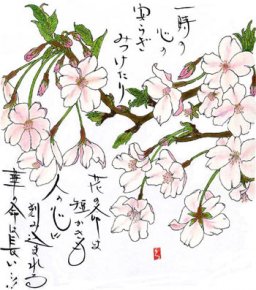 一時の
心の
安らぎ
みつけたり
花の命は
短かさも
人の心に
刻み込まれる
華の命は長い